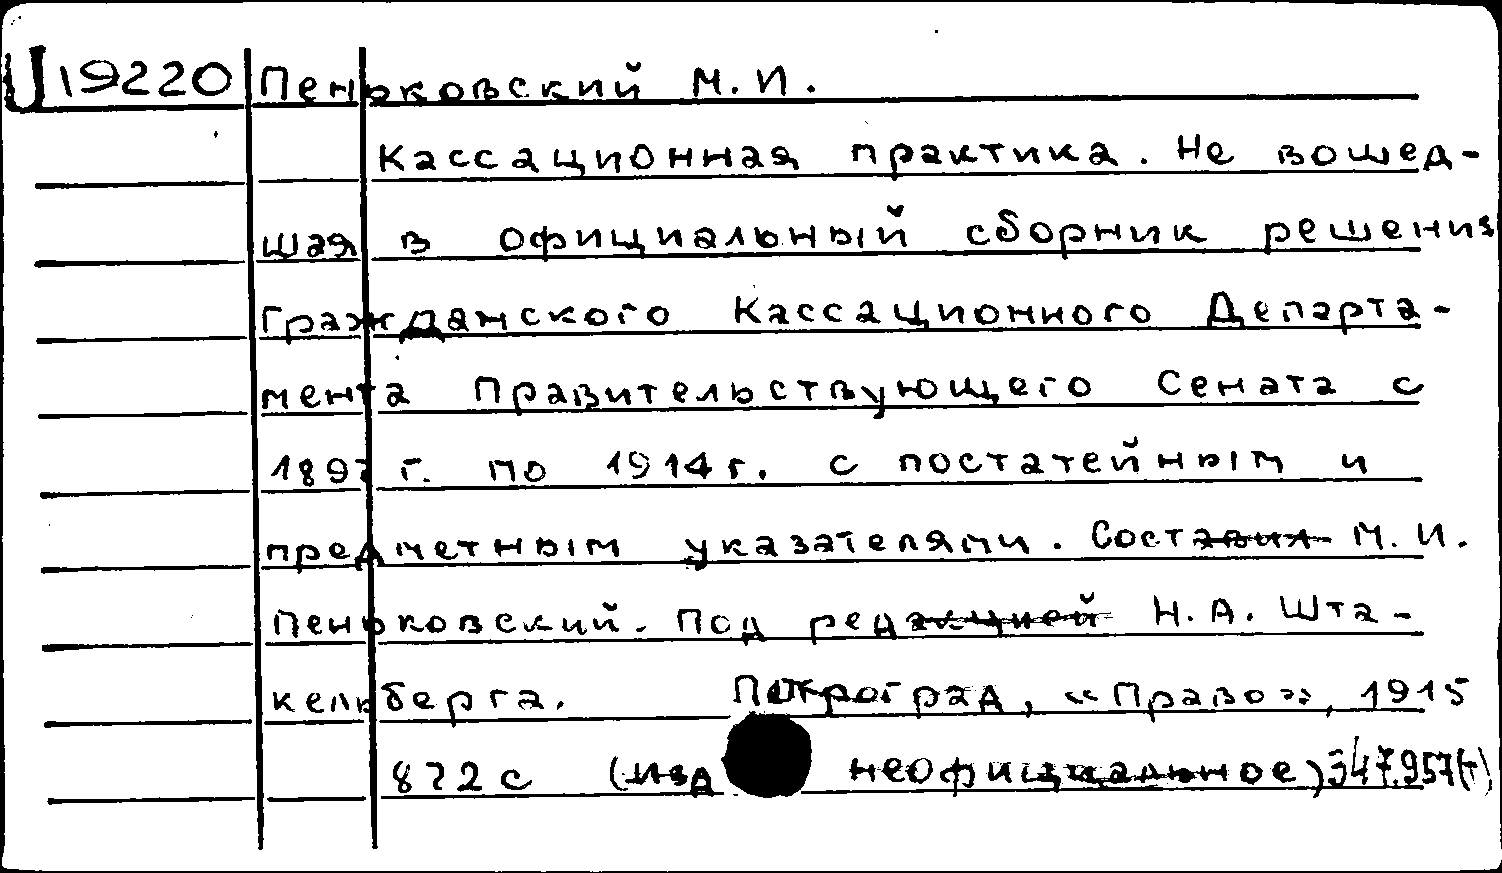 U 19220 Пенюковский М. И.
Кассационная практика. Не вошед-
шая в официальный сборник решения
Гражданского Кассационного Департа-
мента Правительствующего Сената с
1897 г. по 1914 г. с постатейным и
предметным указателями. Составил М. И.
Пенюковский. Под редакцией Н. А. Шта-
кельберга. Петроград, «Право», 1915
872 с (изд неофициальное) 347.957(т)